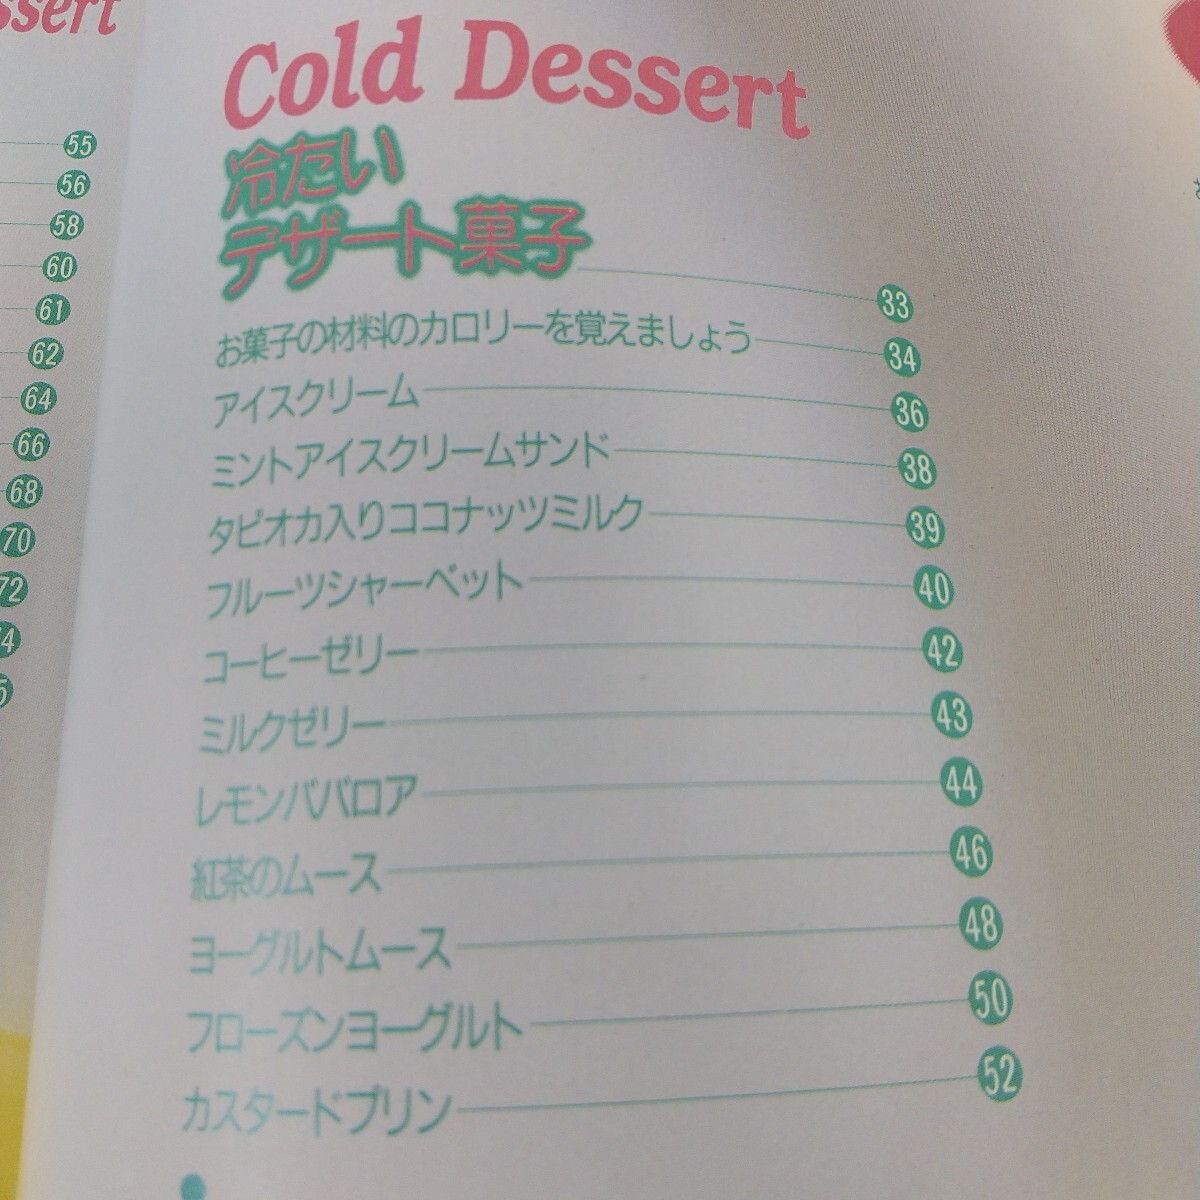 ssert
55
56
58
60
61
62
64
66
68
70
72
Cold Dessert
冷たい
デザート菓子 33
お菓子の材料のカロリーを覚えましょう 34
アイスクリーム 36
ミントアイスクリームサンド 38
タピオカ入りココナッツミルク 39
フルーツシャーベット 40
コーヒーゼリー 42
ミルクゼリー 43
レモンババロア 44
紅茶のムース 46
ヨーグルトムース 48
フローズンヨーグルト 50
カスタードプリン 52